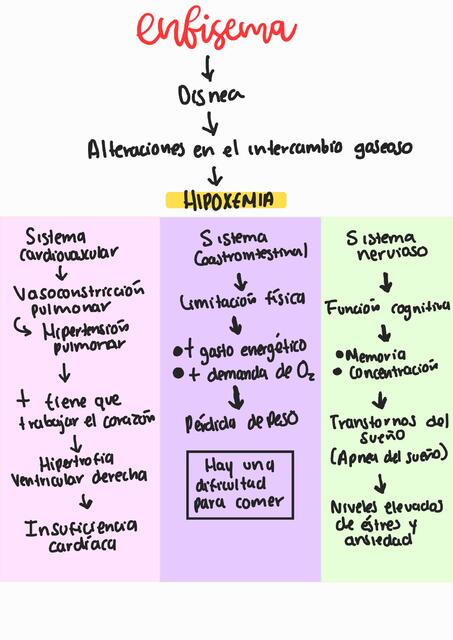 enfisema
Disnea
Alteraciones en el intercambio gaseoso
HIPOXEMIA
Sistema
cardiovascular
Vasoconstricción
pulmonar
Hipertensión
pulmonar
+ tiene que
trabajar el corazón
Hipertrofia
Ventricular derecha
Insuficiencia
cardíaca
Sistema
Gastrointestinal
Limitación física
+ gasto energético
+ demanda de O₂
Pérdida de peso
Hay una
dificultad
para comer
Sistema
nervioso
Función cognitiva
Memoria
Concentración
Transtornos del
sueño
(Apnea del sueño)
Niveles elevados
de éstres y
ansiedad